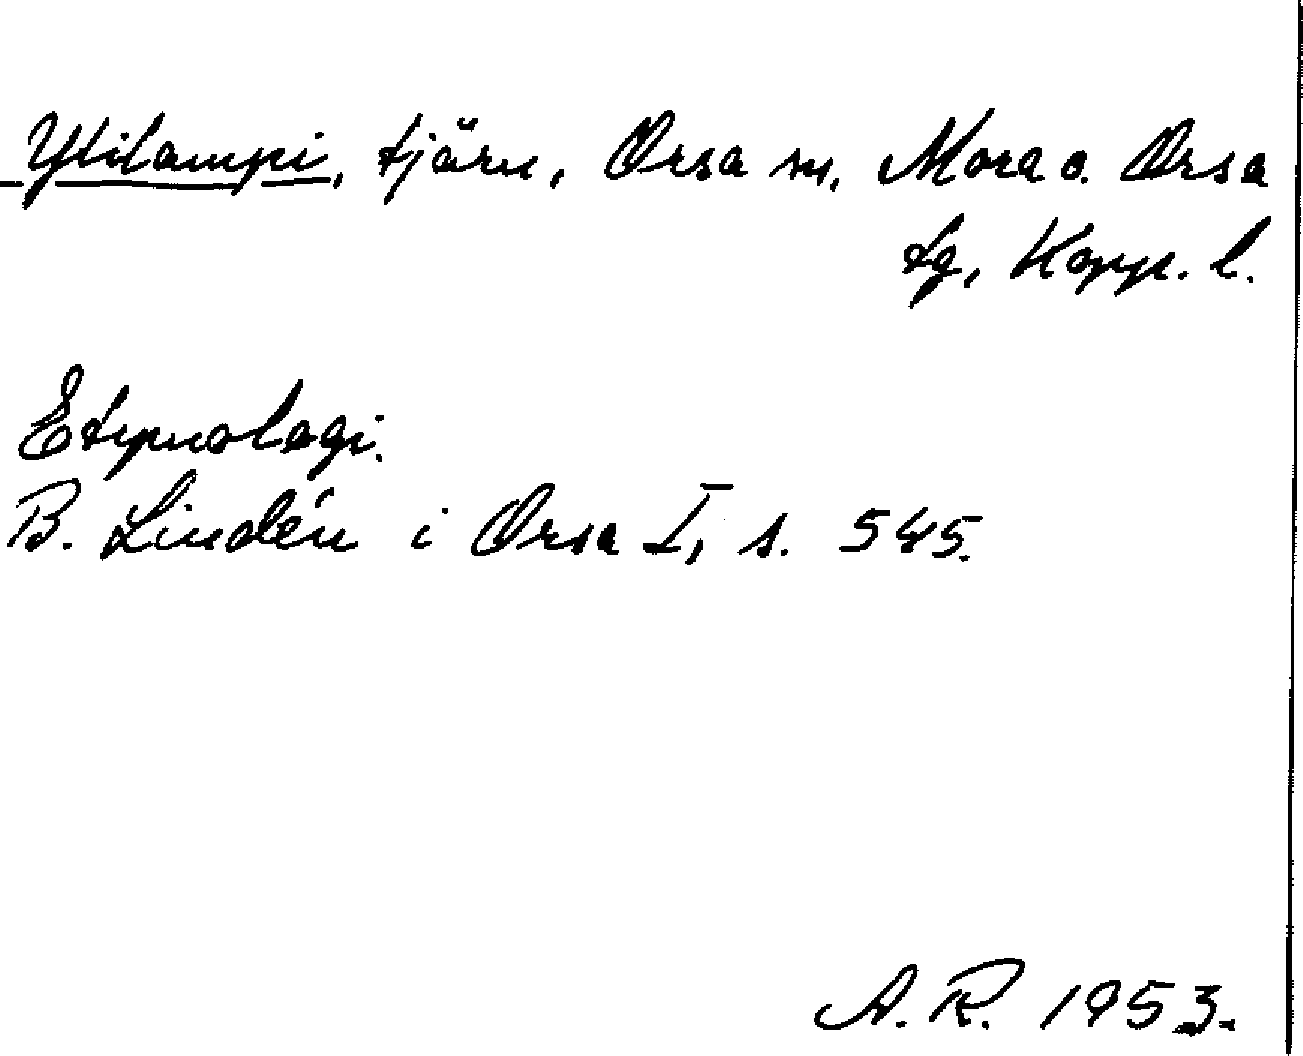 Ytilampi, tjärn, Orsa sn, Mora o. Orsa
tg, Kopp. l.
Etymologi.
B. Lindén i Orsa I, s. 545.
A. R. 1953.